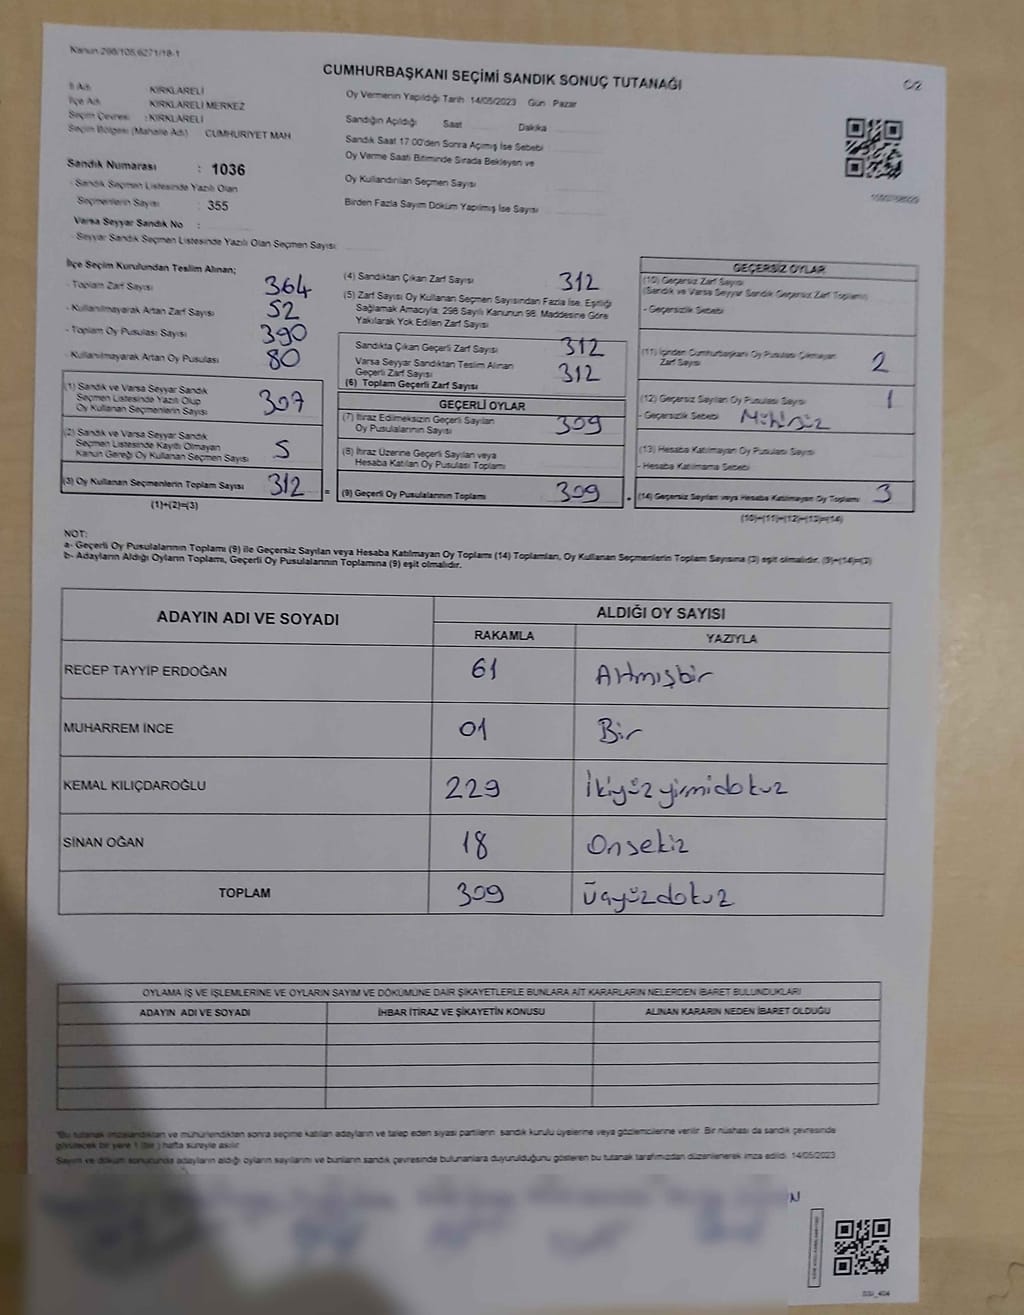 Kanun 298/105,6271/18-1
CUMHURBAŞKANI SEÇİMİ SANDIK SONUÇ TUTANAĞI
İl Adı KIRKLARELİ
İlçe Adı KIRKLARELİ MERKEZ
Seçim Çevresi : KIRKLARELİ
Seçim Bölgesi (Mahalle Adı) CUMHURİYET MAH
Sandık Numarası : 1036
- Sandık Seçmen Listesinde Yazılı Olan
Seçmenlerin Sayısı : 355
Varsa Seyyar Sandık No :
- Seyyar Sandık Seçmen Listesinde Yazılı Olan Seçmen Sayısı:
Oy Vermenin Yapıldığı Tarih 14/05/2023 Gün Pazar
Sandığın Açıldığı Saat Dakika
Sandık Saat 17.00'den Sonra Açılmış İse Sebebi
Oy Verme Saati Bitiminde Sırada Bekleyen ve
Oy Kullandırılan Seçmen Sayısı
Birden Fazla Sayım Döküm Yapılmış İse Sayısı
İlçe Seçim Kurulundan Teslim Alınan;
- Toplam Zarf Sayısı 364
- Kullanılmayarak Artan Zarf Sayısı 52
- Toplam Oy Pusulası Sayısı 390
- Kullanılmayarak Artan Oy Pusulası 80
(1) Sandık ve Varsa Seyyar Sandık
Seçmen Listesinde Yazılı Olup
Oy Kullanan Seçmenlerin Sayısı 307
(2) Sandık ve Varsa Seyyar Sandık
Seçmen Listesinde Kayıtlı Olmayan
Kanun Gereği Oy Kullanan Seçmen Sayısı 5
(3) Oy Kullanan Seçmenlerin Toplam Sayısı 312 =
(1)+(2)=(3)
(4) Sandıktan Çıkan Zarf Sayısı 312
(5) Zarf Sayısı Oy Kullanan Seçmen Sayısından Fazla İse, Eşitliği
Sağlamak Amacıyla, 298 Sayılı Kanunun 98. Maddesine Göre
Yakılarak Yok Edilen Zarf Sayısı
Sandıkta Çıkan Geçerli Zarf Sayısı 312
Varsa Seyyar Sandıktan Teslim Alınan
Geçerli Zarf Sayısı 312
(6) Toplam Geçerli Zarf Sayısı
GEÇERLİ OYLAR
(7) İtiraz Edilmeksizin Geçerli Sayılan
Oy Pusulalarının Sayısı 309
(8) İtiraz Üzerine Geçerli Sayılan veya
Hesaba Katılan Oy Pusulası Toplamı
(9) Geçerli Oy Pusulalarının Toplamı 309
GEÇERSİZ OYLAR
(10) Geçersiz Zarf Sayısı
(Sandık ve Varsa Seyyar Sandık Geçersiz Zarf Toplamı)
- Geçersizlik Sebebi
(11) İçinden Cumhurbaşkanı Oy Pusulası Çıkmayan
Zarf Sayısı 2
(12) Geçersiz Sayılan Oy Pusulası Sayısı 1
- Geçersizlik Sebebi Mühürsüz
(13) Hesaba Katılmayan Oy Pusulası Sayısı
- Hesaba Katılmama Sebebi
(14) Geçersiz Sayılan veya Hesaba Katılmayan Oy Toplamı 3
(10)+(11)+(12)+(13)=(14)
NOT:
a- Geçerli Oy Pusulalarının Toplamı (9) ile Geçersiz Sayılan veya Hesaba Katılmayan Oy Toplamı (14) Toplamları, Oy Kullanan Seçmenlerin Toplam Sayısına (3) eşit olmalıdır. (9)+(14)=(3)
b- Adayların Aldığı Oyların Toplamı, Geçerli Oy Pusulalarının Toplamına (9) eşit olmalıdır.
ADAYIN ADI VE SOYADI ALDIĞI OY SAYISI
RAKAMLA YAZIYLA
RECEP TAYYİP ERDOĞAN 61 Altmışbir
MUHARREM İNCE 01 Bir
KEMAL KILIÇDAROĞLU 229 İkiyüzyirmidokuz
SİNAN OĞAN 18 Onsekiz
TOPLAM 309 Üçyüzdokuz
OYLAMA İŞ VE İŞLEMLERİNE VE OYLARIN SAYIM VE DÖKÜMÜNE DAİR ŞİKAYETLERLE BUNLARA AİT KARARLARIN NELERDEN İBARET BULUNDUKLARI
ADAYIN ADI VE SOYADI İHBAR İTİRAZ VE ŞİKAYETİN KONUSU ALINAN KARARIN NEDEN İBARET OLDUĞU
*Bu tutanak imzalandıktan ve mühürlendikten sonra seçime katılan adayların ve talep eden siyasi partilerin sandık kurulu üyelerine veya gözlemcilerine verilir. Bir nüshası da sandık çevresinde
görülecek bir yere 1 (bir) hafta süreyle asılır.
Sayım ve döküm sonucunda adayların aldığı oyların sayılarını ve bunların sandık çevresinde bulunanlara duyurulduğunu gösteren bu tutanak tarafımızdan düzenlenerek imza edildi. 14/05/2023